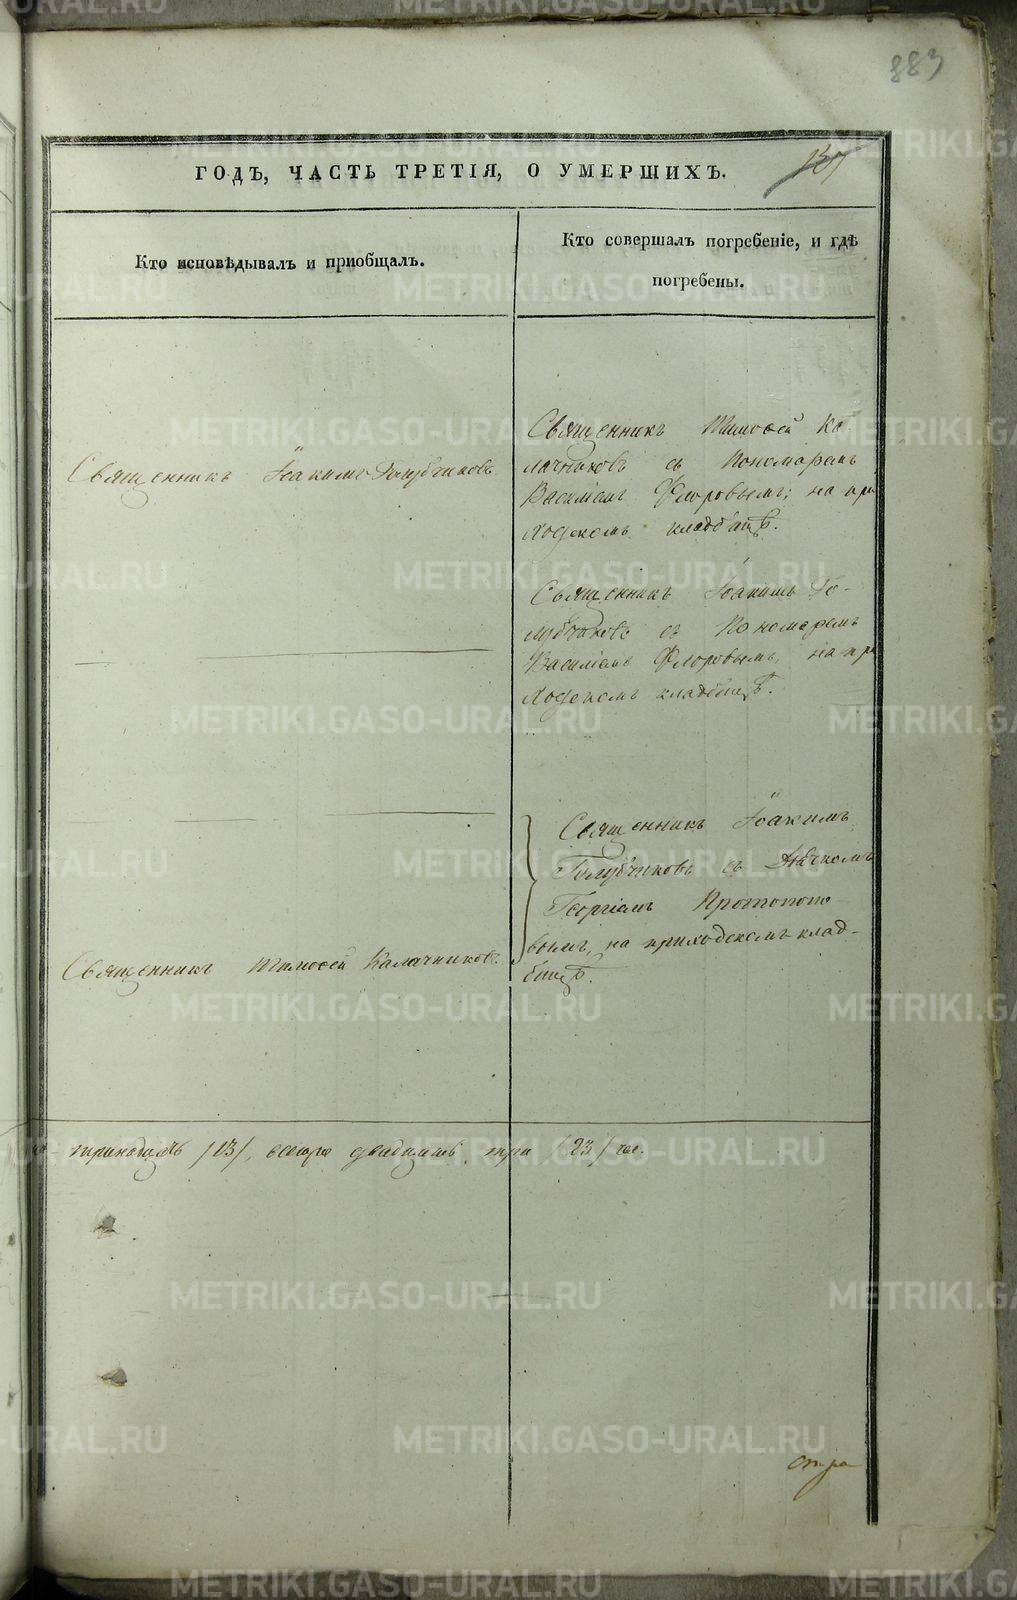 883
137
ГОДЪ, ЧАСТЬ ТРЕТІЯ, О УМЕРШИХЪ.
Кто исповѣдывалъ и пріобщалъ.
Кто совершалъ погребеніе, и гдѣ
погребены.
Священникъ Іоакимъ Голубчиковъ
Священникъ Тимоѳей Ка-
лачниковъ съ Пономаремъ
Василіемъ Флоровымъ; на при
ходскомъ кладбищѣ.
Священникъ Іоакимъ Го-
лубчиковъ съ Пономаремъ
Василіемъ Флоровымъ, на при
ходскомъ кладбищѣ.
Священникъ Іоакимъ
Голубчиковъ съ Дьячкомъ
Георгіемъ Протопопо-
вымъ, на приходскомъ клад-
бищѣ.
Священникъ Тимоѳей Калачниковъ.
тринадцать /13/, всего двадцать три /23/ че.
METRIKI.GASO-URAL.RU